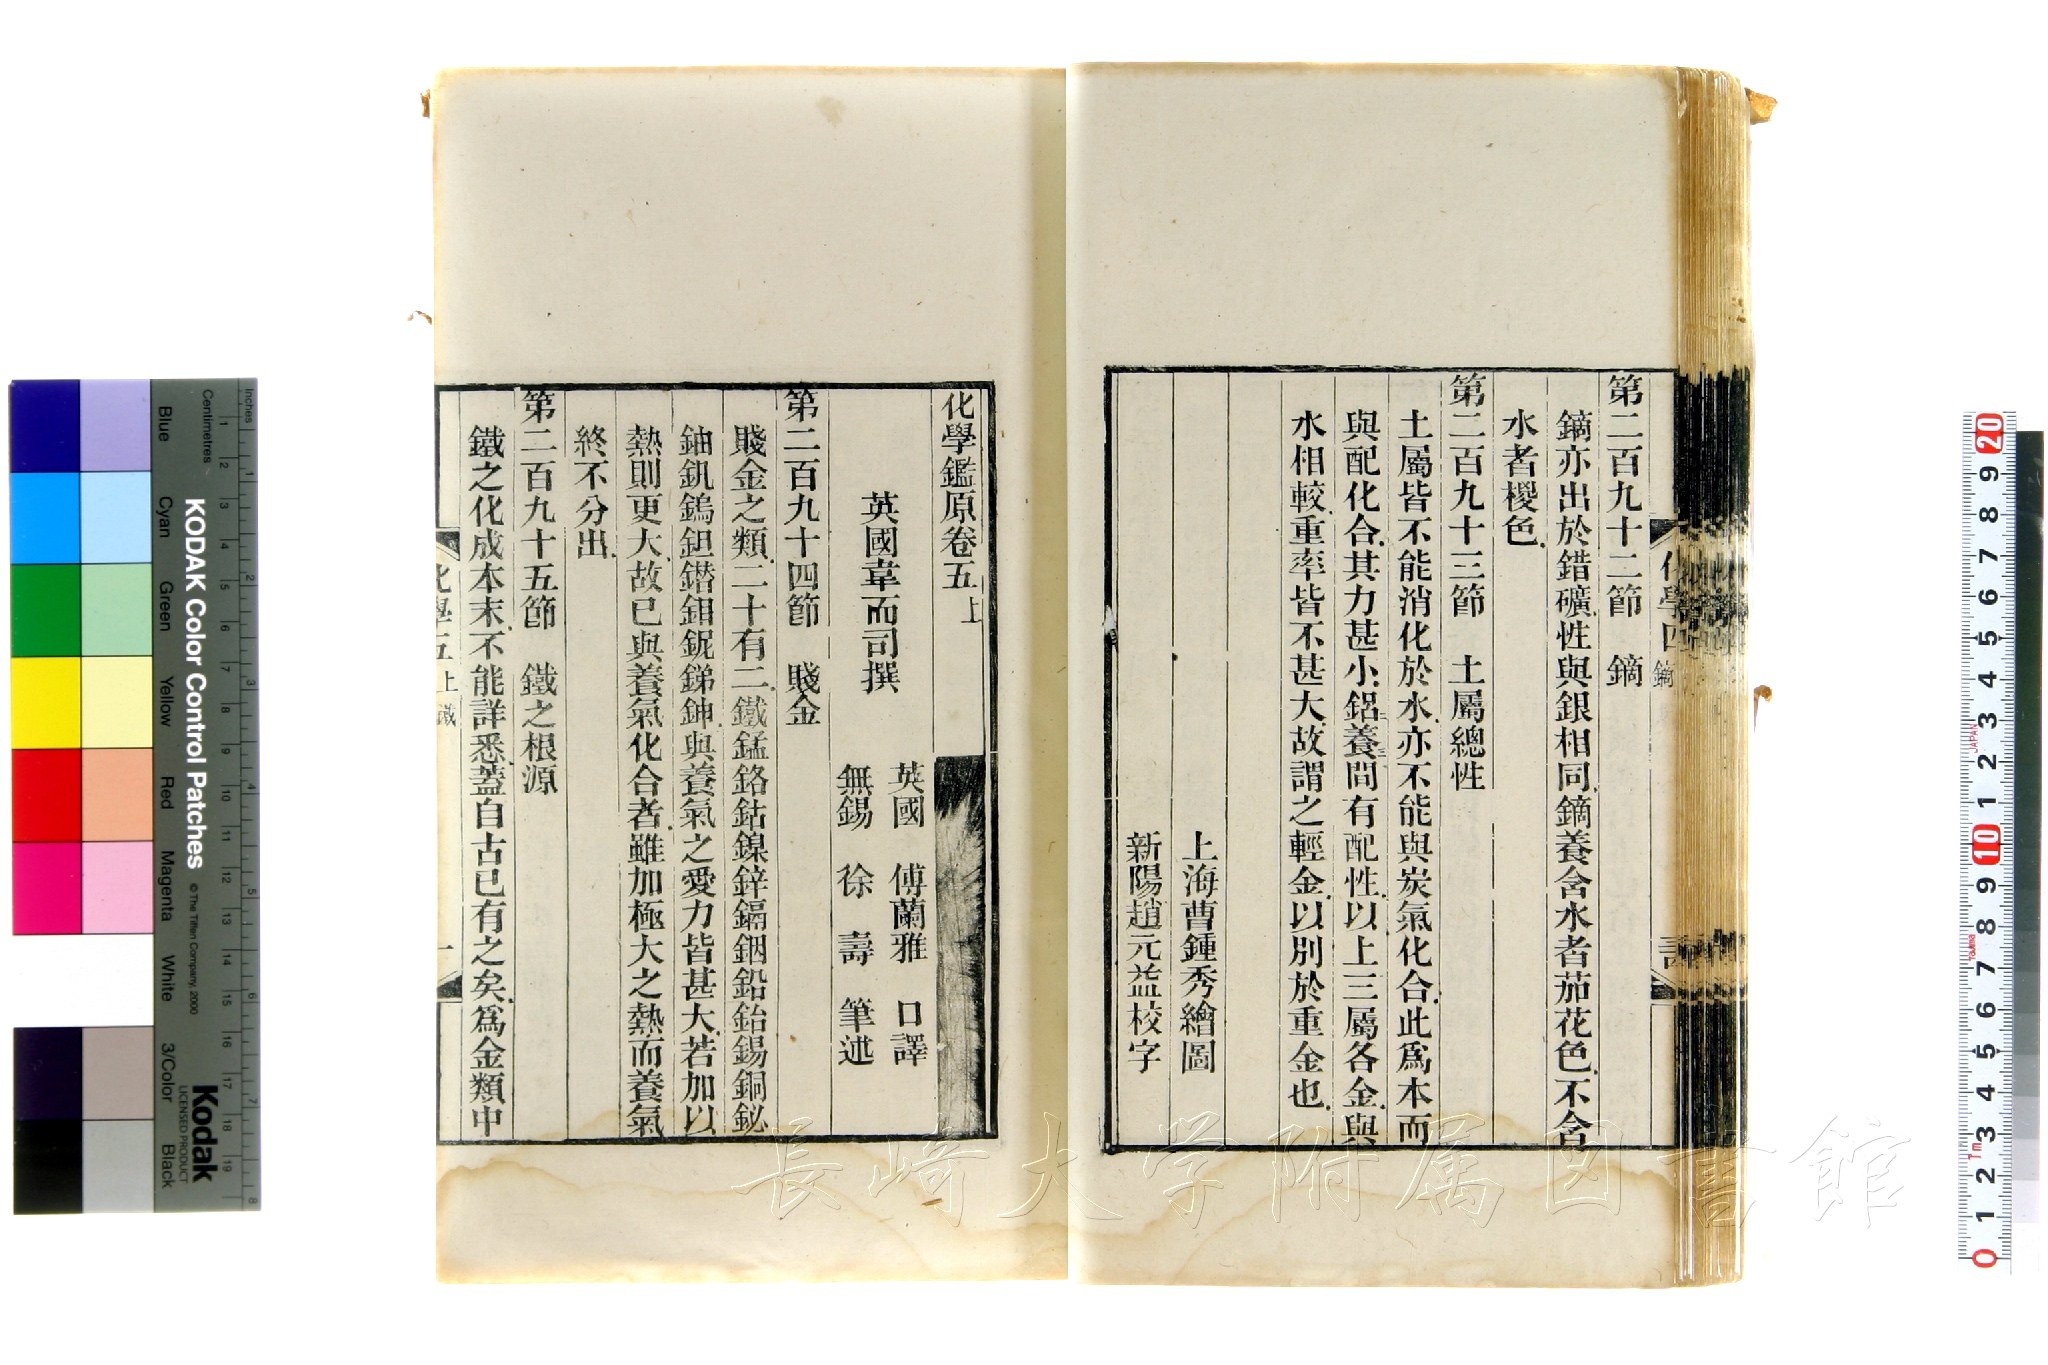 第二百九十二節　鏑
鏑亦出於錯礦.性與銀相同.鏑養含水者茄花色.不含
水者椶色.
第二百九十三節　土屬總性
土屬皆不能消化於水.亦不能與炭氣化合.此爲本而
與配化合.其力甚小.鋁養間有配性.以上三屬各金.與
水相較.重率皆不甚大.故謂之輕金.以別於重金也.
上海曹鍾秀繪圖
新陽趙元益校字
化學四 鏑
化學鑑原卷五上
英國韋而司撰
英國　傅蘭雅　口譯
無錫　徐　壽　筆述
第二百九十四節　賤金
賤金之類.二十有二.鐵錳鉻鈷鎳鋅鎘銦鉛鉿錫銅鉍
鈾釩鎢鉭鐟鉬鈮銻鉮.與養氣之愛力皆甚大.若加以
熱則更大.故已與養氣化合者.雖加極大之熱.而養氣
終不分出.
第二百九十五節　鐵之根源
鐵之化成本末.不能詳悉.蓋自古已有之矣.爲金類中
化學五 上 鐵 一
長崎大学附属図書館
Inches
Centimetres
KODAK Color Control Patches
© The Tiffen Company, 2000
Kodak
LICENSED PRODUCT
Blue
Cyan
Green
Yellow
Red
Magenta
White
3/Color
Black
1 2 3 4 5 6 7 8 9 10 11 12 13 14 15 16 17 18 19
1 2 3 4 5 6 7 8
20 9 8 7 6 5 4 3 2 1 10 9 8 7 6 5 4 3 2 1 0
JAPAN